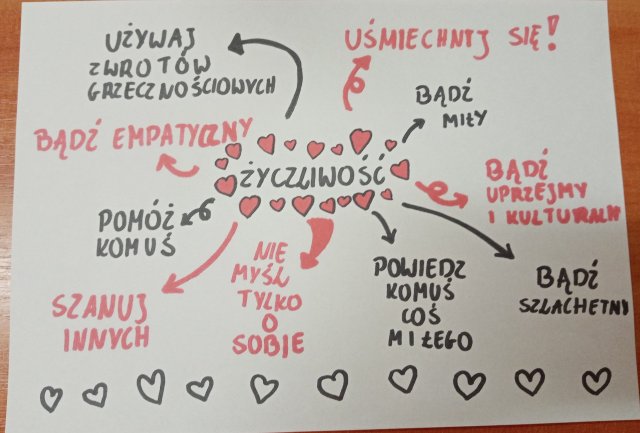 UŻYWAJ
ZWROTÓW
GRZECZNOŚCIOWYCH
UŚMIECHNIJ SIĘ!
BĄDŹ
MIŁY
BĄDŹ EMPATYCZNY
ŻYCZLIWOŚĆ
BĄDŹ
UPRZEJMY
I KULTURALN
POMÓŻ
KOMUŚ
SZANUJ
INNYCH
NIE
MYŚL
TYLKO
O
SOBIE
POWIEDZ
KOMUŚ
COŚ
MIŁEGO
BĄDŹ
SZLACHETNY